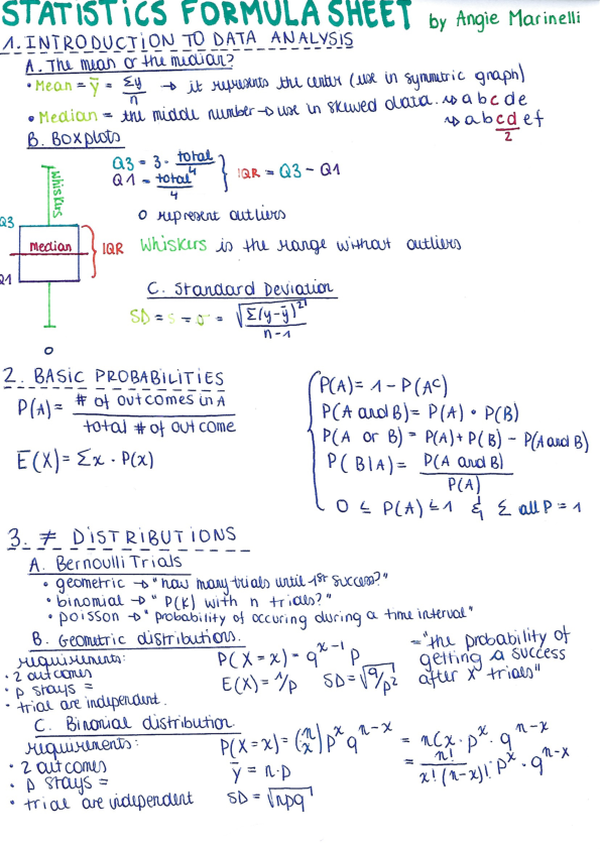 STATISTICS FORMULA SHEET by Angie Marinelli
1. INTRODUCTION TO DATA ANALYSIS
A. The mean or the median?
• Mean = ȳ = Σy/n → it represents the center (use in symmetric graph)
• Median = the middle number → use in skewed data. ↪ a b c d e
↪ a b cd e f
2
B. Boxplots
Q3 = 3 · total/4
Q1 = total/4
IQR = Q3 - Q1
whiskers
O represent outliers
Q3
Median
IQR
Whiskers is the range without outliers
Q1
C. Standard Deviation
SD = s = σ = √(Σ(y-ȳ)²/n-1)
2. BASIC PROBABILITIES
P(A) = # of outcomes in A / total # of outcome
E(X) = Σx · P(x)
P(A) = 1 - P(Aᶜ)
P(A and B) = P(A) · P(B)
P(A or B) = P(A) + P(B) - P(A and B)
P(B|A) = P(A and B) / P(A)
0 ≤ P(A) ≤ 1 & Σ all P = 1
3. ≠ DISTRIBUTIONS
A. Bernoulli Trials
• geometric → "how many trials until 1st success?"
• binomial → "P(k) with n trials?"
• poisson → "probability of occuring during a time interval"
B. Geometric distributions.
requirements:
• 2 outcomes
• p stays =
• trial are independent.
P(X = x) = q^(x-1) p
E(X) = 1/p SD = √(q/p²)
= "the probability of
getting a success
after x trials"
C. Binomial distribution.
requirements:
• 2 outcomes
• p stays =
• trial are independent
P(X = x) = (n x) p^x q^(n-x) = nCx · p^x · q^(n-x)
= n!/x!(n-x)! · p^x · q^(n-x)
ȳ = n·p
SD = √npq